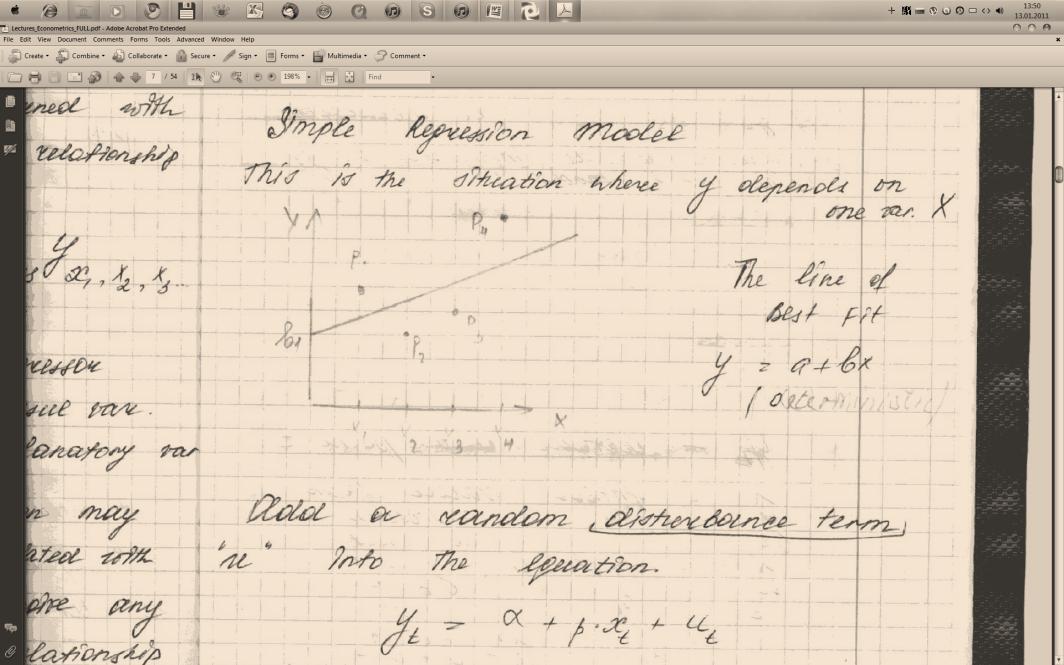 13:50
13.01.2011
Lectures_Econometrics_FULL.pdf - Adobe Acrobat Pro Extended
File Edit View Document Comments Forms Tools Advanced Window Help
Create Combine Collaborate Secure Sign Forms Multimedia Comment
7 / 54 198% Find
with
relationship
y
x₁, x₂, x₃...
var.
var
may
with
any
Simple Regression Model
This is the situation where y depends on
one var. X
Y
P₄
P.
P₃
P₂
X
2 3 4
The line of
Best Fit
y = a + bx
(deterministic)
Add a random disturbance term
"u" into the equation.
yₜ = α + β·xₜ + uₜ